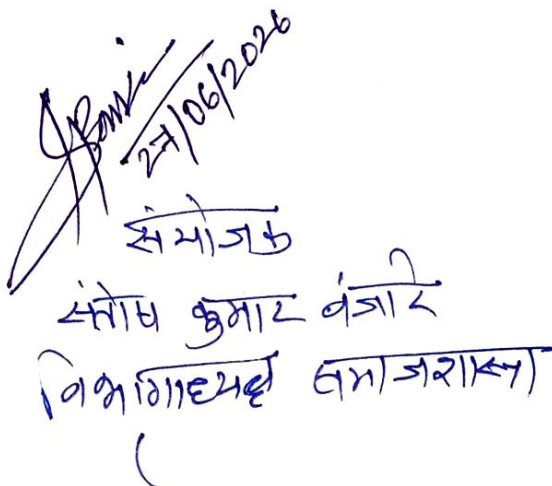 27/06/2026
संयोजक
संतोष कुमार बंजारे
विभागाध्यक्ष समाजशास्त्र